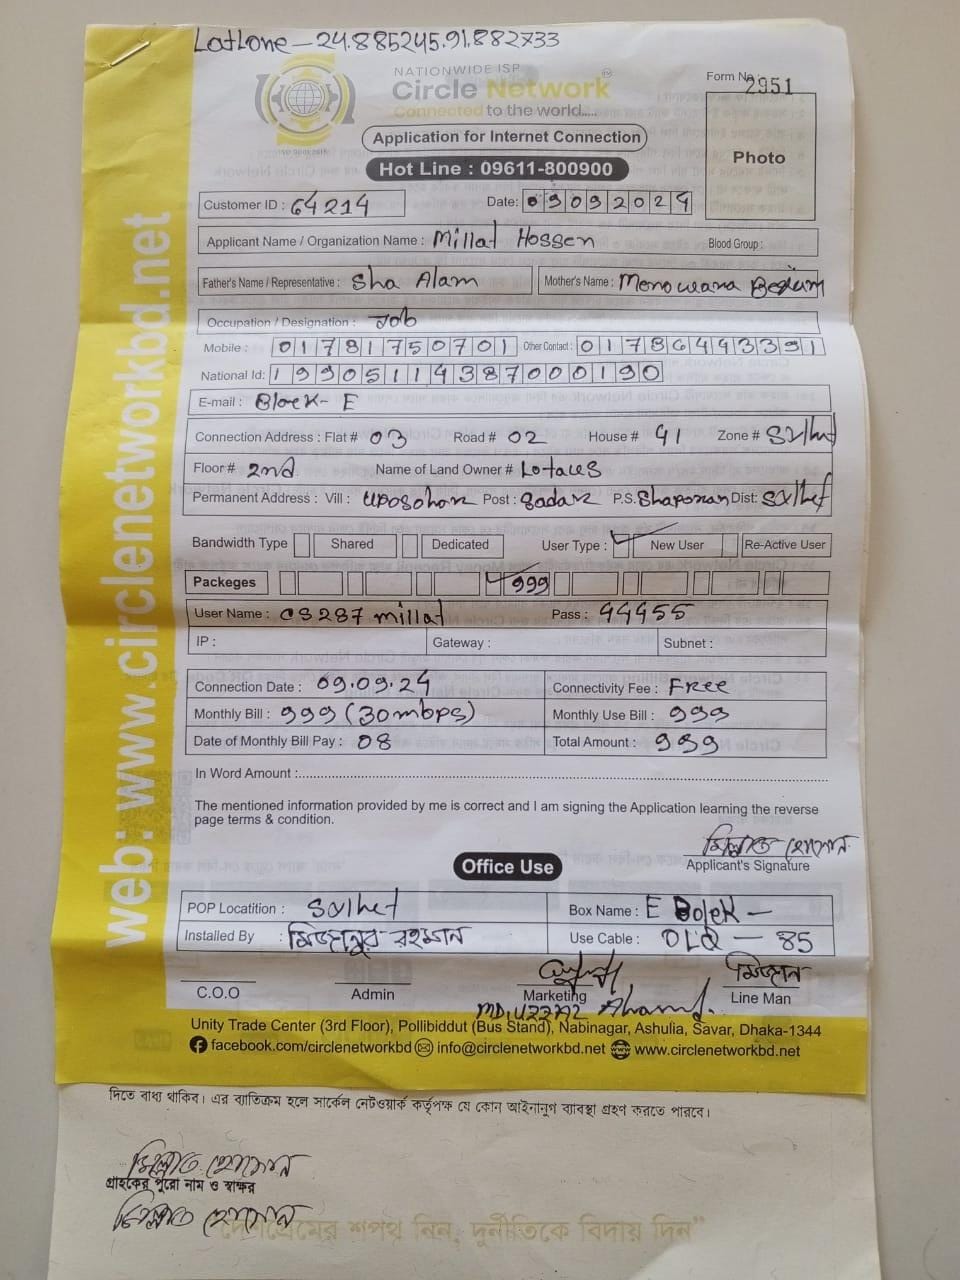 LatLone - 24.885245.91.882733
NATIONWIDE ISP
Circle Network
Connected to the world.....
ISO 9001:2015
Form No: 2951
Application for Internet Connection
Hot Line : 09611-800900
Photo
Customer ID : 64214
Date: 09092024
Applicant Name / Organization Name : Millat Hossen
Blood Group :
Father's Name / Representative : Sha Alam
Mother's Name : Menowara Begum
Occupation / Designation : Job
Mobile : 01781750701 Other Contact : 01786443391
National Id: 19905114387000190
E-mail : Block- E
Connection Address : Flat # 03 Road # 02 House # 41 Zone # Sylhet
Floor # 2nd Name of Land Owner # Lotaus
Permanent Address : Vill : Uposohor Post : Sadar P.S. Shaporan Dist: Sylhet
Bandwidth Type Shared Dedicated User Type : New User Re-Active User
Packeges 999
User Name : CS287 millat Pass : 44455
IP : Gateway : Subnet :
Connection Date : 09.09.24 Connectivity Fee : Free
Monthly Bill : 999 (30mbps) Monthly Use Bill : 999
Date of Monthly Bill Pay : 08 Total Amount : 999
In Word Amount :
The mentioned information provided by me is correct and I am signing the Application learning the reverse
page terms & condition.
মিল্লাত হোসেন
Applicant's Signature
Office Use
POP Locatition : Sylhet Box Name : E Bolek -
Installed By : মিজানুর রহমান Use Cable : DLQ - 85
মিজান
C.O.O Admin Marketing Line Man
MD. UZZAL Ahamd.
Unity Trade Center (3rd Floor), Pollibiddut (Bus Stand), Nabinagar, Ashulia, Savar, Dhaka-1344
facebook.com/circlenetworkbd info@circlenetworkbd.net www.circlenetworkbd.net
web: www.circlenetworkbd.net
দিতে বাধ্য থাকিব। এর ব্যাতিক্রম হলে সার্কেল নেটওয়ার্ক কর্তৃপক্ষ যে কোন আইনানুগ ব্যাবস্থা গ্রহণ করতে পারবে।
মিল্লাত হোসেন
গ্রাহকের পুরো নাম ও স্বাক্ষর
মিল্লাত হোসেন
"দেশপ্রেমের শপথ নিন, দুর্নীতিকে বিদায় দিন"